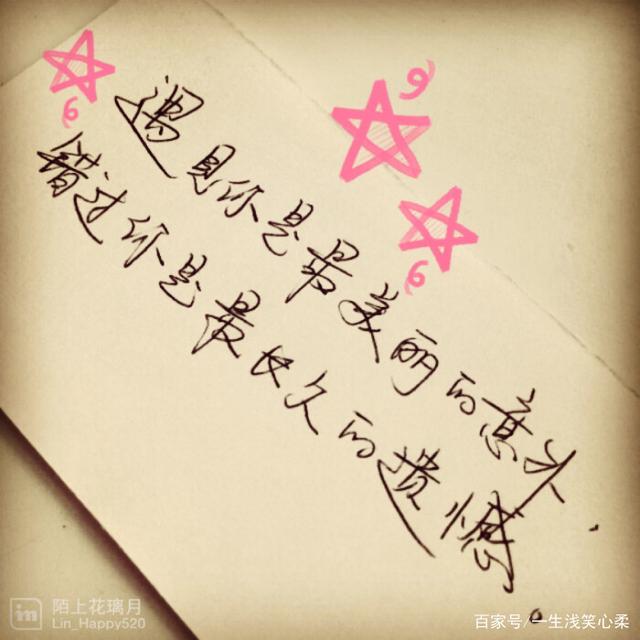 遇见你是最美丽的意外.
错过你是最长久的遗憾。
陌上花璃月
Lin_Happy520
百家号/一生浅笑心柔